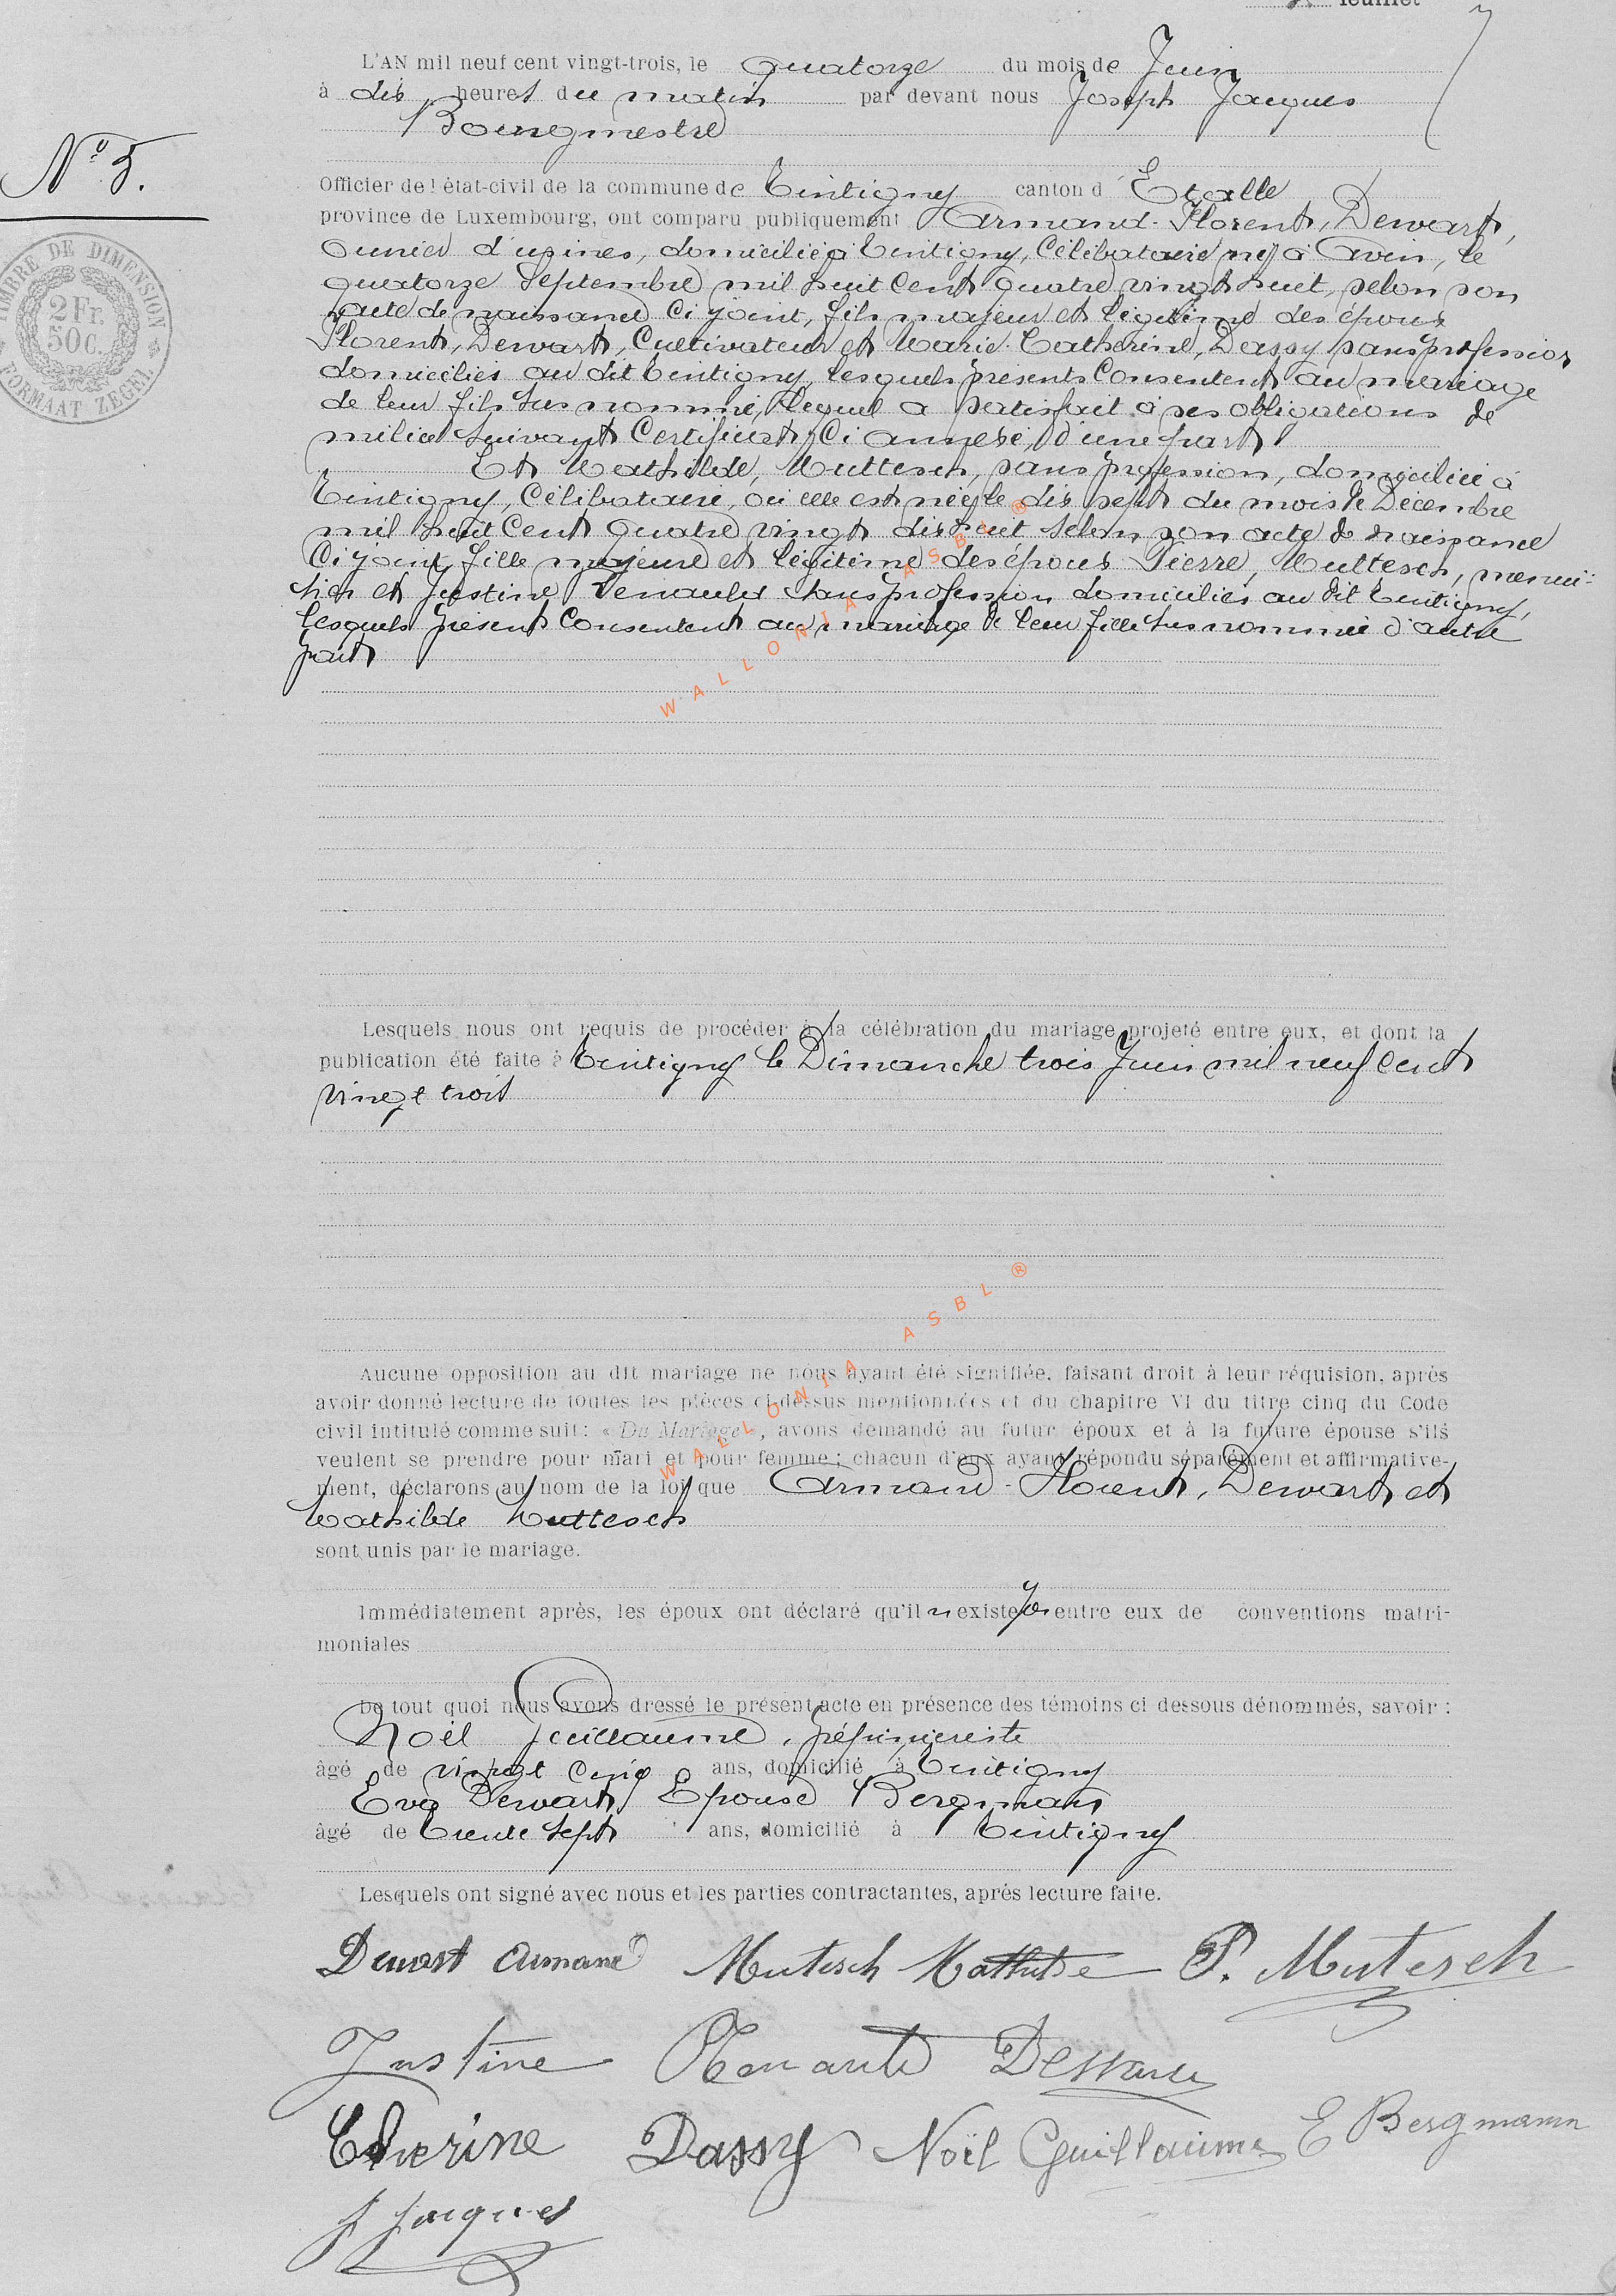 feuillet
L'AN mil neuf cent vingt-trois, le quatorze du mois de Juin
à dix heures du matin par devant nous Joseph Jacques
Bourgmestre
N° 5.
Officier de l'état-civil de la commune de Tintigny canton d'Etalle
province de Luxembourg, ont comparu publiquement Armand-Florent, Dewart,
ouvrier d'usines, domicilié à Tintigny, Célibataire né à Avin, le
quatorze Septembre mil huit cent quatre vingt huit, selon son
acte de naissance ci joint, fils majeur et légitime des époux
Florent, Dewart, Cultivateur et Marie-Catherine, Dassy sans profession
domiciliés au dit Tintigny, lesquels présents Consentent au mariage
de leur fils sus nommé, lequel a satisfait à ses obligations de
milice suivant Certificat ci annexé, d'une part
Et Mathilde, Muttesch, sans profession, domiciliée à
Tintigny, Célibataire, où elle est née le dix sept du mois de Décembre
mil huit cent quatre vingt dix huit selon son acte de naissance
ci joint, fille majeure et légitime des époux Pierre, Muttesch, menui-
sier et Justine, Renauld sans profession domiciliés au dit Tintigny,
lesquels présent Consentent au mariage de leur fille sus nommée d'autre
part
TIMBRE DE DIMENSION
2 Fr.
50 C.
FORMAAT ZEGEL
WALLONIA ASBL ®
Lesquels nous ont requis de procéder à la célébration du mariage projeté entre eux, et dont la
publication été faite à Tintigny le Dimanche trois Juin mil neuf cent
vingt trois
WALLONIA ASBL ®
Aucune opposition au dit mariage ne nous ayant été signifiée, faisant droit à leur réquision, après
avoir donné lecture de toutes les pièces ci dessus mentionnées et du chapitre VI du titre cinq du Code
civil intitulé comme suit: « Du Mariage », avons demandé au futur époux et à la future épouse s'ils
veulent se prendre pour mari et pour femme; chacun d'eux ayant répondu séparément et affirmative-
ment, déclarons au nom de la loi que Armand-Florent, Dewart et
Mathilde Muttesch
sont unis par le mariage.
Immédiatement après, les époux ont déclaré qu'il n existe pas entre eux de conventions matri-
moniales
De tout quoi nous avons dressé le présent acte en présence des témoins ci dessous dénommés, savoir :
Noël Guillaume, pépiniériste
âgé de vingt cinq ans, domicilié à Tintigny
Eva Dewart Epouse Bergman
âgé de trente sept ans, domicilié à Tintigny
Lesquels ont signé avec nous et les parties contractantes, après lecture faite.
Dewart Armand Mutesch Mathilde P. Mutesch
Justine
Dassy Noël Guillaume E Bergmann
J Jacques